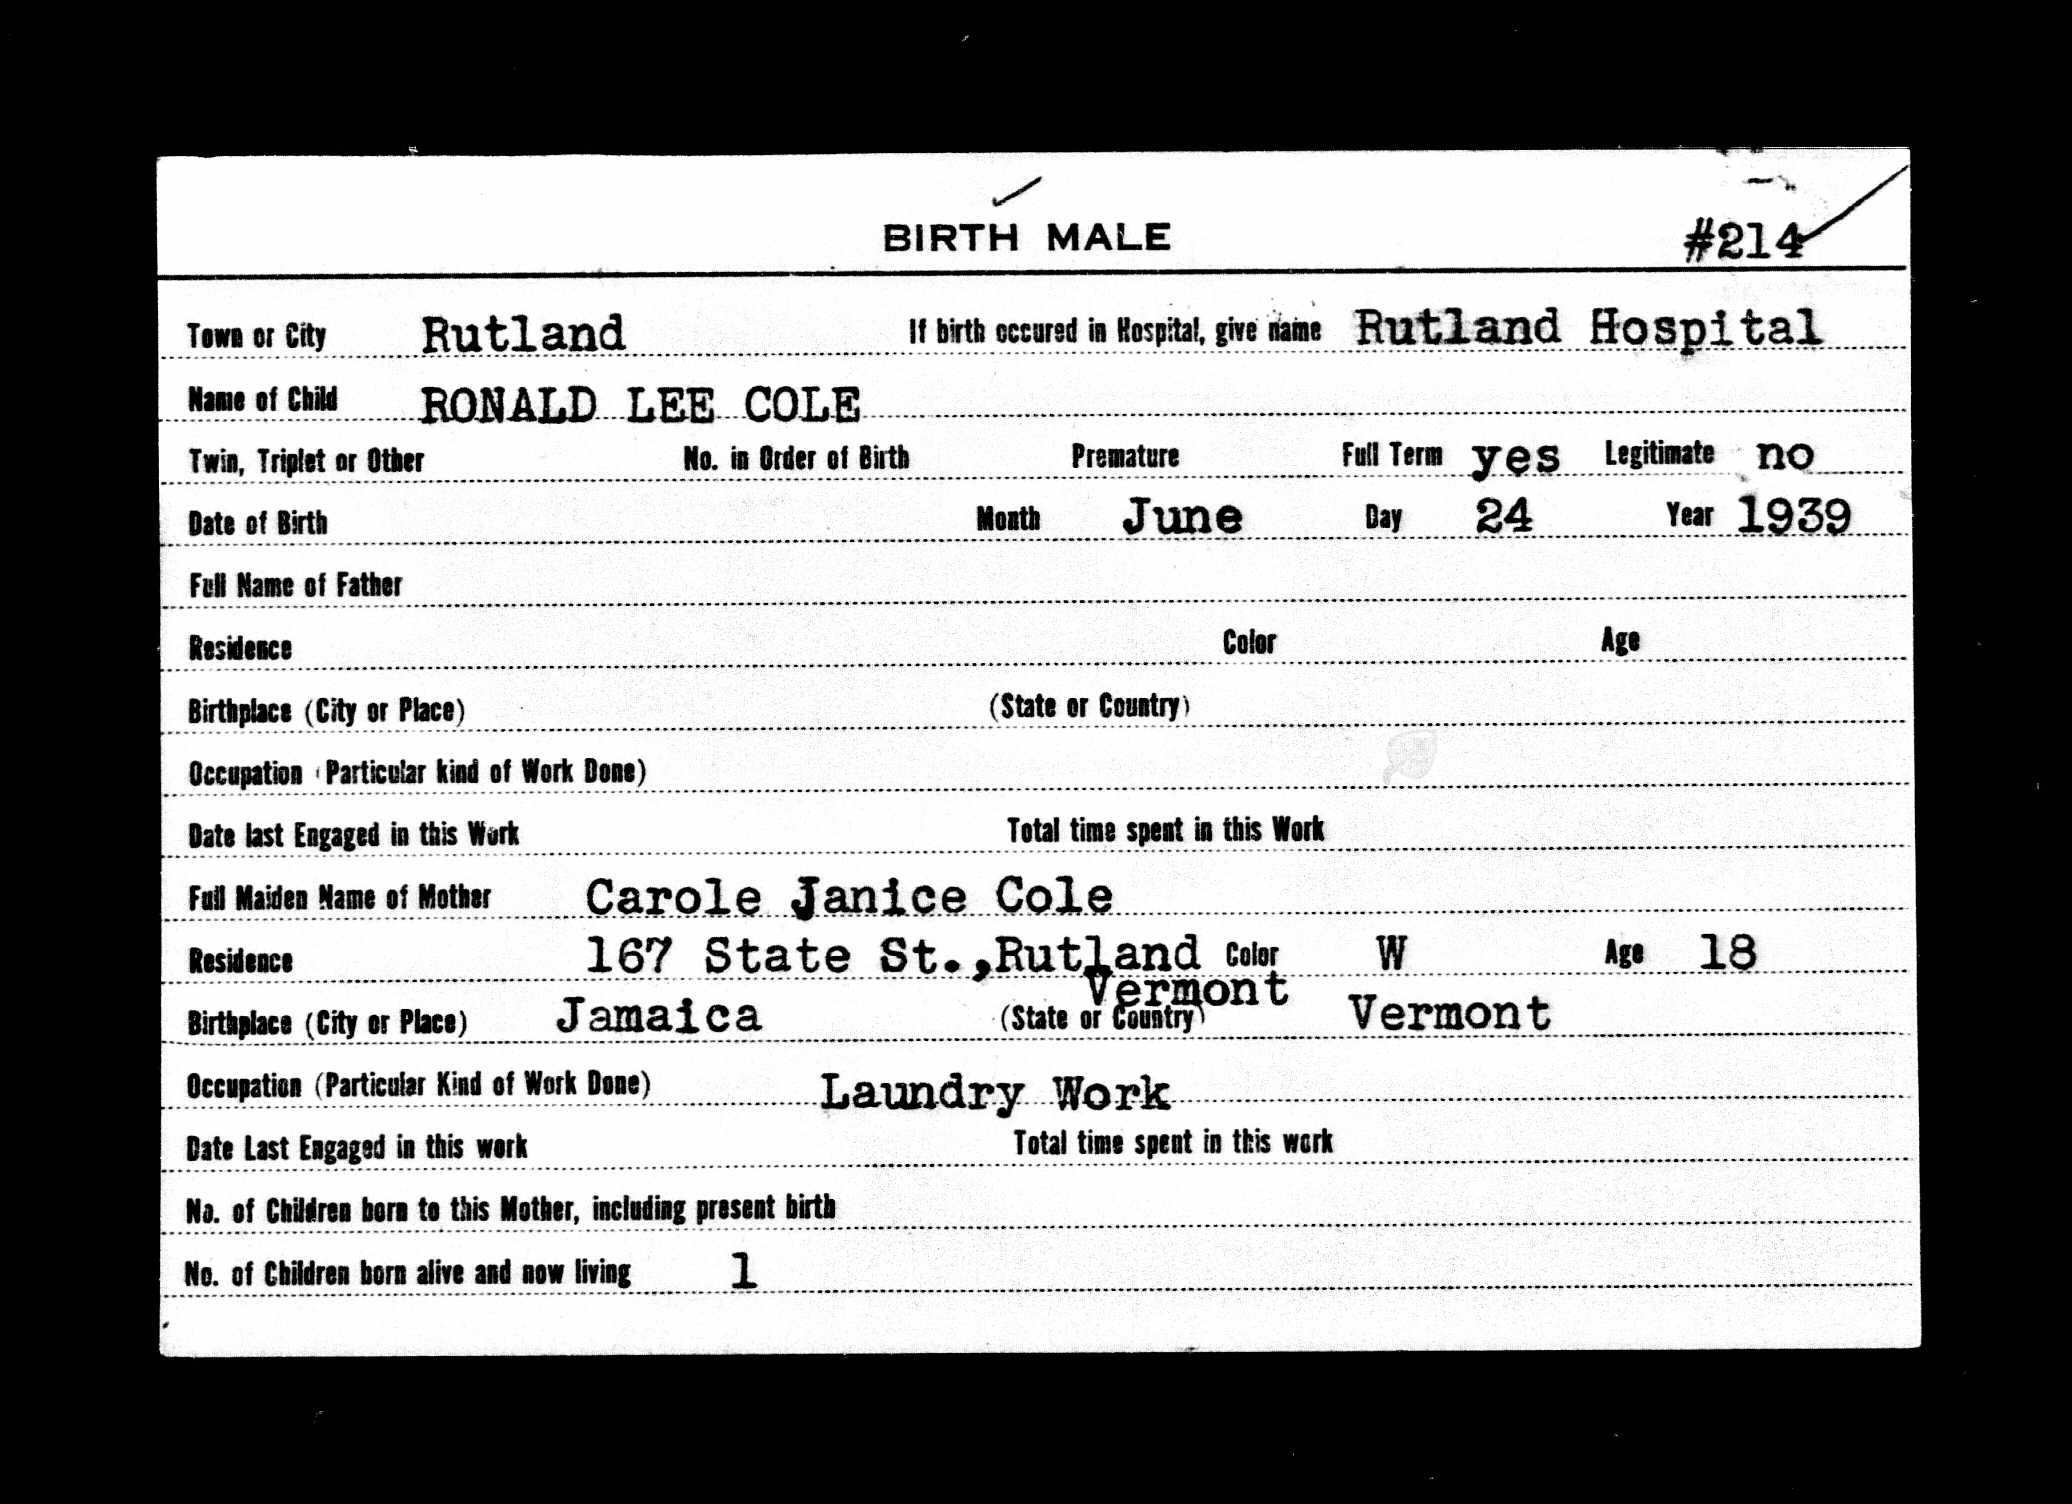 BIRTH MALE #214
Town or City Rutland If birth occured in Hospital, give name Rutland Hospital
Name of Child RONALD LEE COLE
Twin, Triplet or Other No. in Order of Birth Premature Full Term yes Legitimate no
Date of Birth Month June Day 24 Year 1939
Full Name of Father
Residence Color Age
Birthplace (City or Place) (State or Country)
Occupation (Particular kind of Work Done)
Date last Engaged in this Work Total time spent in this Work
Full Maiden Name of Mother Carole Janice Cole
Residence 167 State St.,Rutland Color W Age 18
Vermont
Birthplace (City or Place) Jamaica (State or Country) Vermont
Occupation (Particular Kind of Work Done) Laundry Work
Date Last Engaged in this work Total time spent in this work
No. of Children born to this Mother, including present birth
No. of Children born alive and now living 1